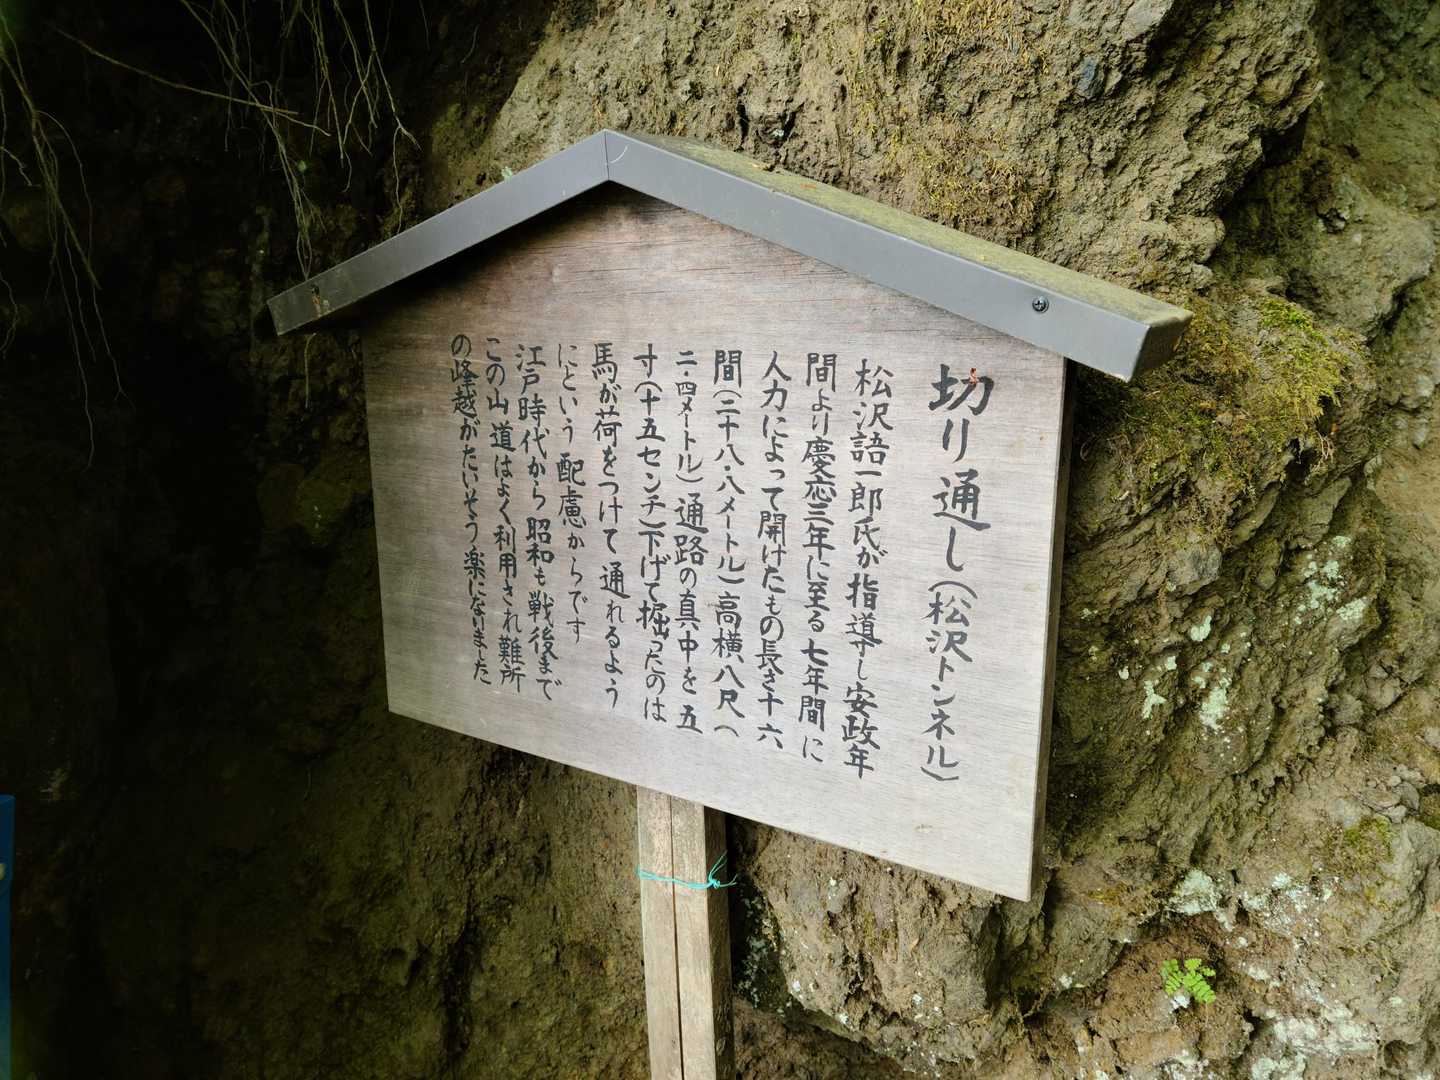 切り通し(松沢トンネル)
松沢語一郎氏が指導し安政年
間より慶応三年に至る七年間に
人力によって開けたもの長さ十六
間(二十八・八メートル)高横八尺(
二・四メートル)通路の真中を五
寸(十五センチ)下げて掘ったのは
馬が荷をつけて通れるよう
にという配慮からです
江戸時代から昭和も戦後まで
この山道はよく利用され難所
の峰越がたいそう楽になりました